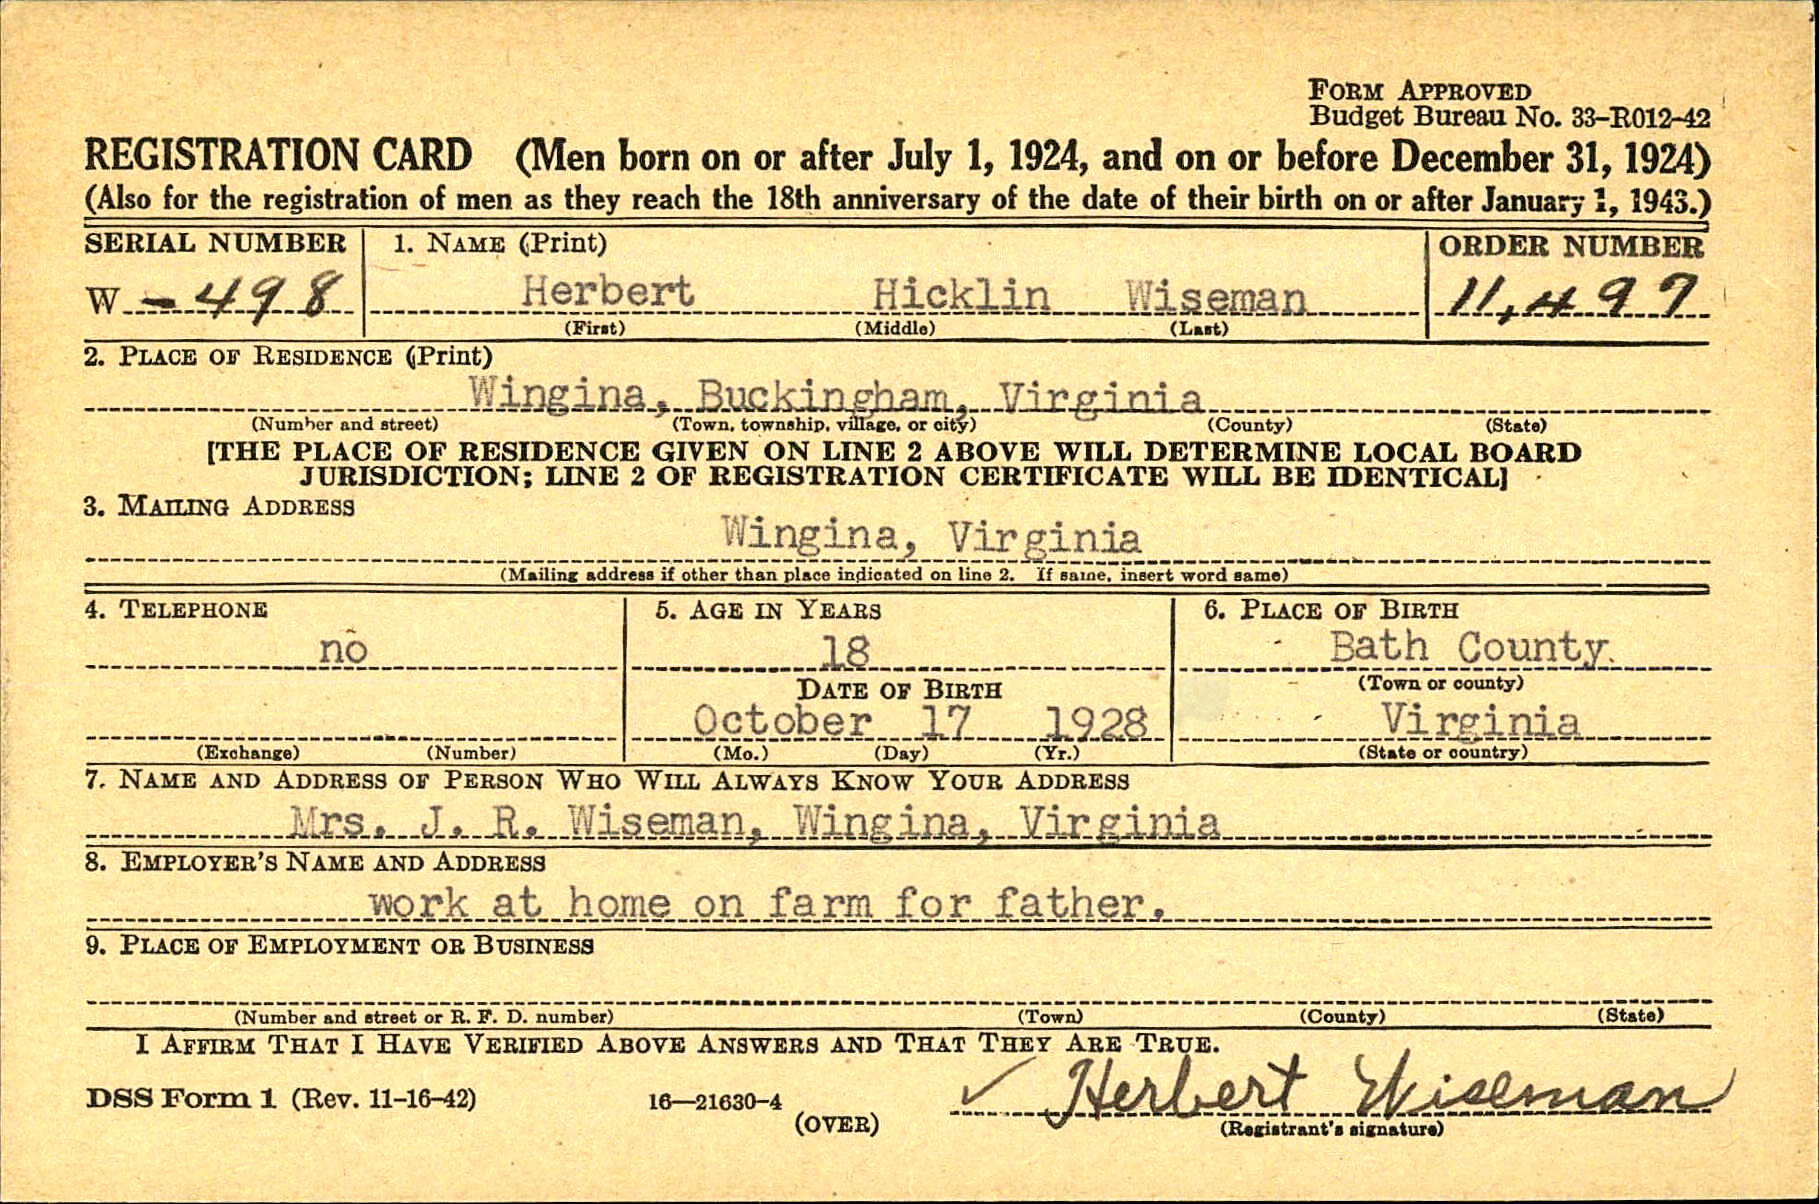 FORM APPROVED
Budget Bureau No. 33-R012-42
REGISTRATION CARD (Men born on or after July 1, 1924, and on or before December 31, 1924)
(Also for the registration of men as they reach the 18th anniversary of the date of their birth on or after January 1, 1943.)
SERIAL NUMBER 1. NAME (Print) ORDER NUMBER
W - 498 Herbert Hicklin Wiseman 11,497
(First) (Middle) (Last)
2. PLACE OF RESIDENCE (Print)
Wingina, Buckingham, Virginia
(Number and street) (Town, township, village, or city) (County) (State)
[THE PLACE OF RESIDENCE GIVEN ON LINE 2 ABOVE WILL DETERMINE LOCAL BOARD
JURISDICTION; LINE 2 OF REGISTRATION CERTIFICATE WILL BE IDENTICAL]
3. MAILING ADDRESS
Wingina, Virginia
(Mailing address if other than place indicated on line 2. If same, insert word same)
4. TELEPHONE 5. AGE IN YEARS 6. PLACE OF BIRTH
no 18 Bath County.
DATE OF BIRTH (Town or county)
October 17 1928 Virginia
(Exchange) (Number) (Mo.) (Day) (Yr.) (State or country)
7. NAME AND ADDRESS OF PERSON WHO WILL ALWAYS KNOW YOUR ADDRESS
Mrs. J. R. Wiseman, Wingina, Virginia
8. EMPLOYER'S NAME AND ADDRESS
work at home on farm for father.
9. PLACE OF EMPLOYMENT OR BUSINESS
(Number and street or R. F. D. number) (Town) (County) (State)
I AFFIRM THAT I HAVE VERIFIED ABOVE ANSWERS AND THAT THEY ARE TRUE.
DSS Form 1 (Rev. 11-16-42) 16—21630-4 (OVER) ✓ Herbert Wiseman
(Registrant's signature)